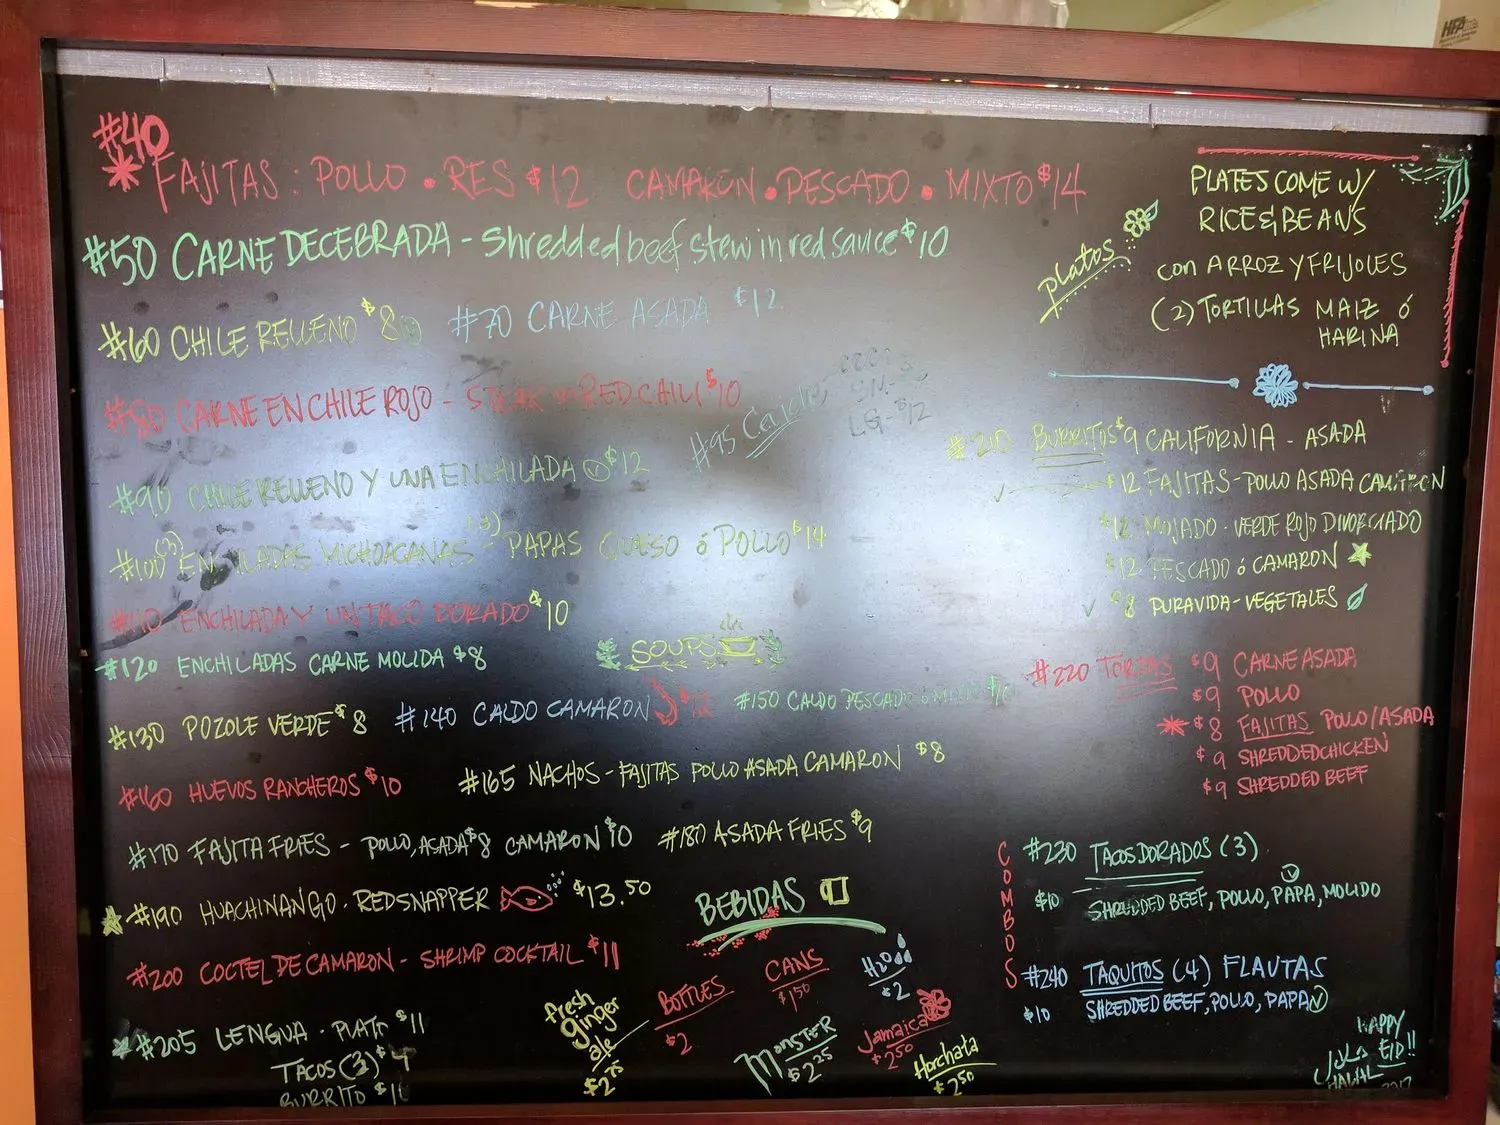 #40
FAJITAS: POLLO • RES $12 CAMARON • PESCADO • MIXTO $14
#50 CARNE DECEBRADA - Shredded beef stew in red sauce $10
#60 CHILE RELLENO $8
#70 CARNE ASADA $12
#80 CARNE EN CHILE ROJO - STEAK IN RED CHILI $10
#95
SM-
LG-$12
#90 CHILE RELLENO Y UNA ENCHILADA $12
#100 (3) MICHOACANAS - PAPAS QUESO ó POLLO $14
#110 ENCHILADA Y UN TACO DORADO $10
#120 ENCHILADAS CARNE MOLIDA $8
SOUPS
#130 POZOLE VERDE $8
#140 CALDO CAMARON
#150 CALDO PESCADO ó
#160 HUEVOS RANCHEROS $10
#165 NACHOS - FAJITAS POLLO ASADA CAMARON $8
#170 FAJITA FRIES - POLLO, ASADA $8 CAMARON $10
#180 ASADA FRIES $9
#190 HUACHINANGO - REDSNAPPER $13.50
#200 COCTEL DE CAMARON - SHRIMP COCKTAIL $11
#205 LENGUA - PLATO $11
TACOS (3) $4
BURRITO
platos
PLATES COME W/
RICE & BEANS
con ARROZ Y FRIJOLES
(2) TORTILLAS MAIZ ó
HARINA
#210 BURRITOS $9 CALIFORNIA - ASADA
$12 FAJITAS - POLLO ASADA CAMARON
$12 MOJADO - VERDE ROJO DIVORCIADO
$12 PESCADO ó CAMARON
$8 PURAVIDA - VEGETALES
#220 TORTAS $9 CARNE ASADA
$9 POLLO
$8 FAJITAS POLLO/ASADA
$9 SHREDDED CHICKEN
$9 SHREDDED BEEF
COMBOS
#230 TACOS DORADOS (3)
$10 SHREDDED BEEF, POLLO, PAPA, MOLIDO
#240 TAQUITOS (4) FLAUTAS
$10 SHREDDED BEEF, POLLO, PAPA
BEBIDAS
fresh
ginger
ale
$2.75
BOTTLES
$2
CANS
$1.50
H2O
$2
MONSTER
$2.25
Jamaica
$2.50
Horchata
$2.50
HAPPY
EID!!
حلال
HALAL
2017
HFA